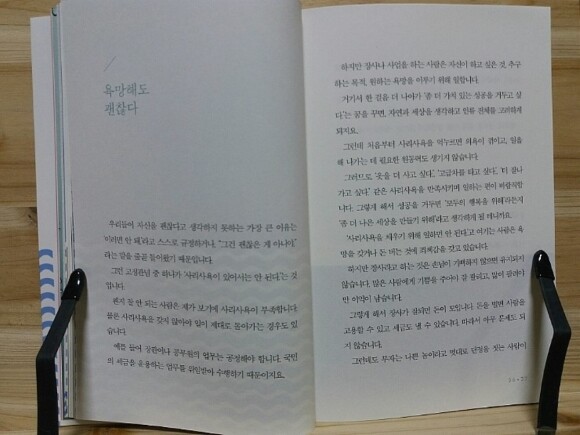 욕망해도
괜찮다
우리들이 자신을 괜찮다고 생각하지 못하는 가장 큰 이유는
'이러면 안 돼'라고 스스로 규정하거나, "그건 괜찮은 게 아니야"
라는 말을 줄곧 들어왔기 때문입니다.
그런 고정관념 중 하나가 '사리사욕이 있어서는 안 된다'는 것
입니다.
왠지 돈 안 되는 사람은 제가 보기에 사리사욕이 부족합니다.
물론 사리사욕을 갖지 않아야 일이 제대로 돌아가는 경우도 있
습니다.
예를 들어 장관이나 공무원의 업무는 공정해야 합니다. 국민
의 세금을 운용하는 업무를 위임받아 수행하기 때문이지요.
하지만 장사나 사업을 하는 사람은 자신이 하고 싶은 것, 추구
하는 목적, 원하는 욕망을 이루기 위해 일합니다.
거기서 한 걸음 더 나아가 '좀 더 가치 있는 성공을 거두고 싶
다'는 꿈을 꾸면, 자연과 세상을 생각하고 인류 전체를 고려하게
되지요.
그런데 처음부터 사리사욕을 억누르면 의욕이 꺾이고, 일을
해 나가는 데 필요한 원동력도 생기지 않습니다.
그러므로 '옷을 더 사고 싶다', '고급차를 타고 싶다', '더 잘나
가고 싶다' 같은 사리사욕을 만족시키며 일하는 편이 바람직합
니다. 그렇게 해서 성공을 거두면 '모두의 행복을 위해'라든지
'좀 더 나은 세상을 만들기 위해'라고 생각하게 될 테니까요.
'사리사욕을 채우기 위해 일하면 안 된다'고 여기는 사람은 욕
망을 갖거나 돈 버는 것에 죄책감을 갖고 있습니다.
하지만 장사라고 하는 것은 손님이 기뻐하지 않으면 유지되지
않습니다. 많은 사람에게 기쁨을 주어야 잘 팔리고, 많이 팔려야
만 이익이 남습니다.
그렇게 해서 장사가 잘되면 돈이 모입니다. 돈을 벌면 사람을
고용할 수 있고 세금도 낼 수 있습니다. 따라서 아무 문제도 되
지 않습니다.
그런데도 부자는 나쁜 놈이라고 멋대로 단정을 짓는 사람이